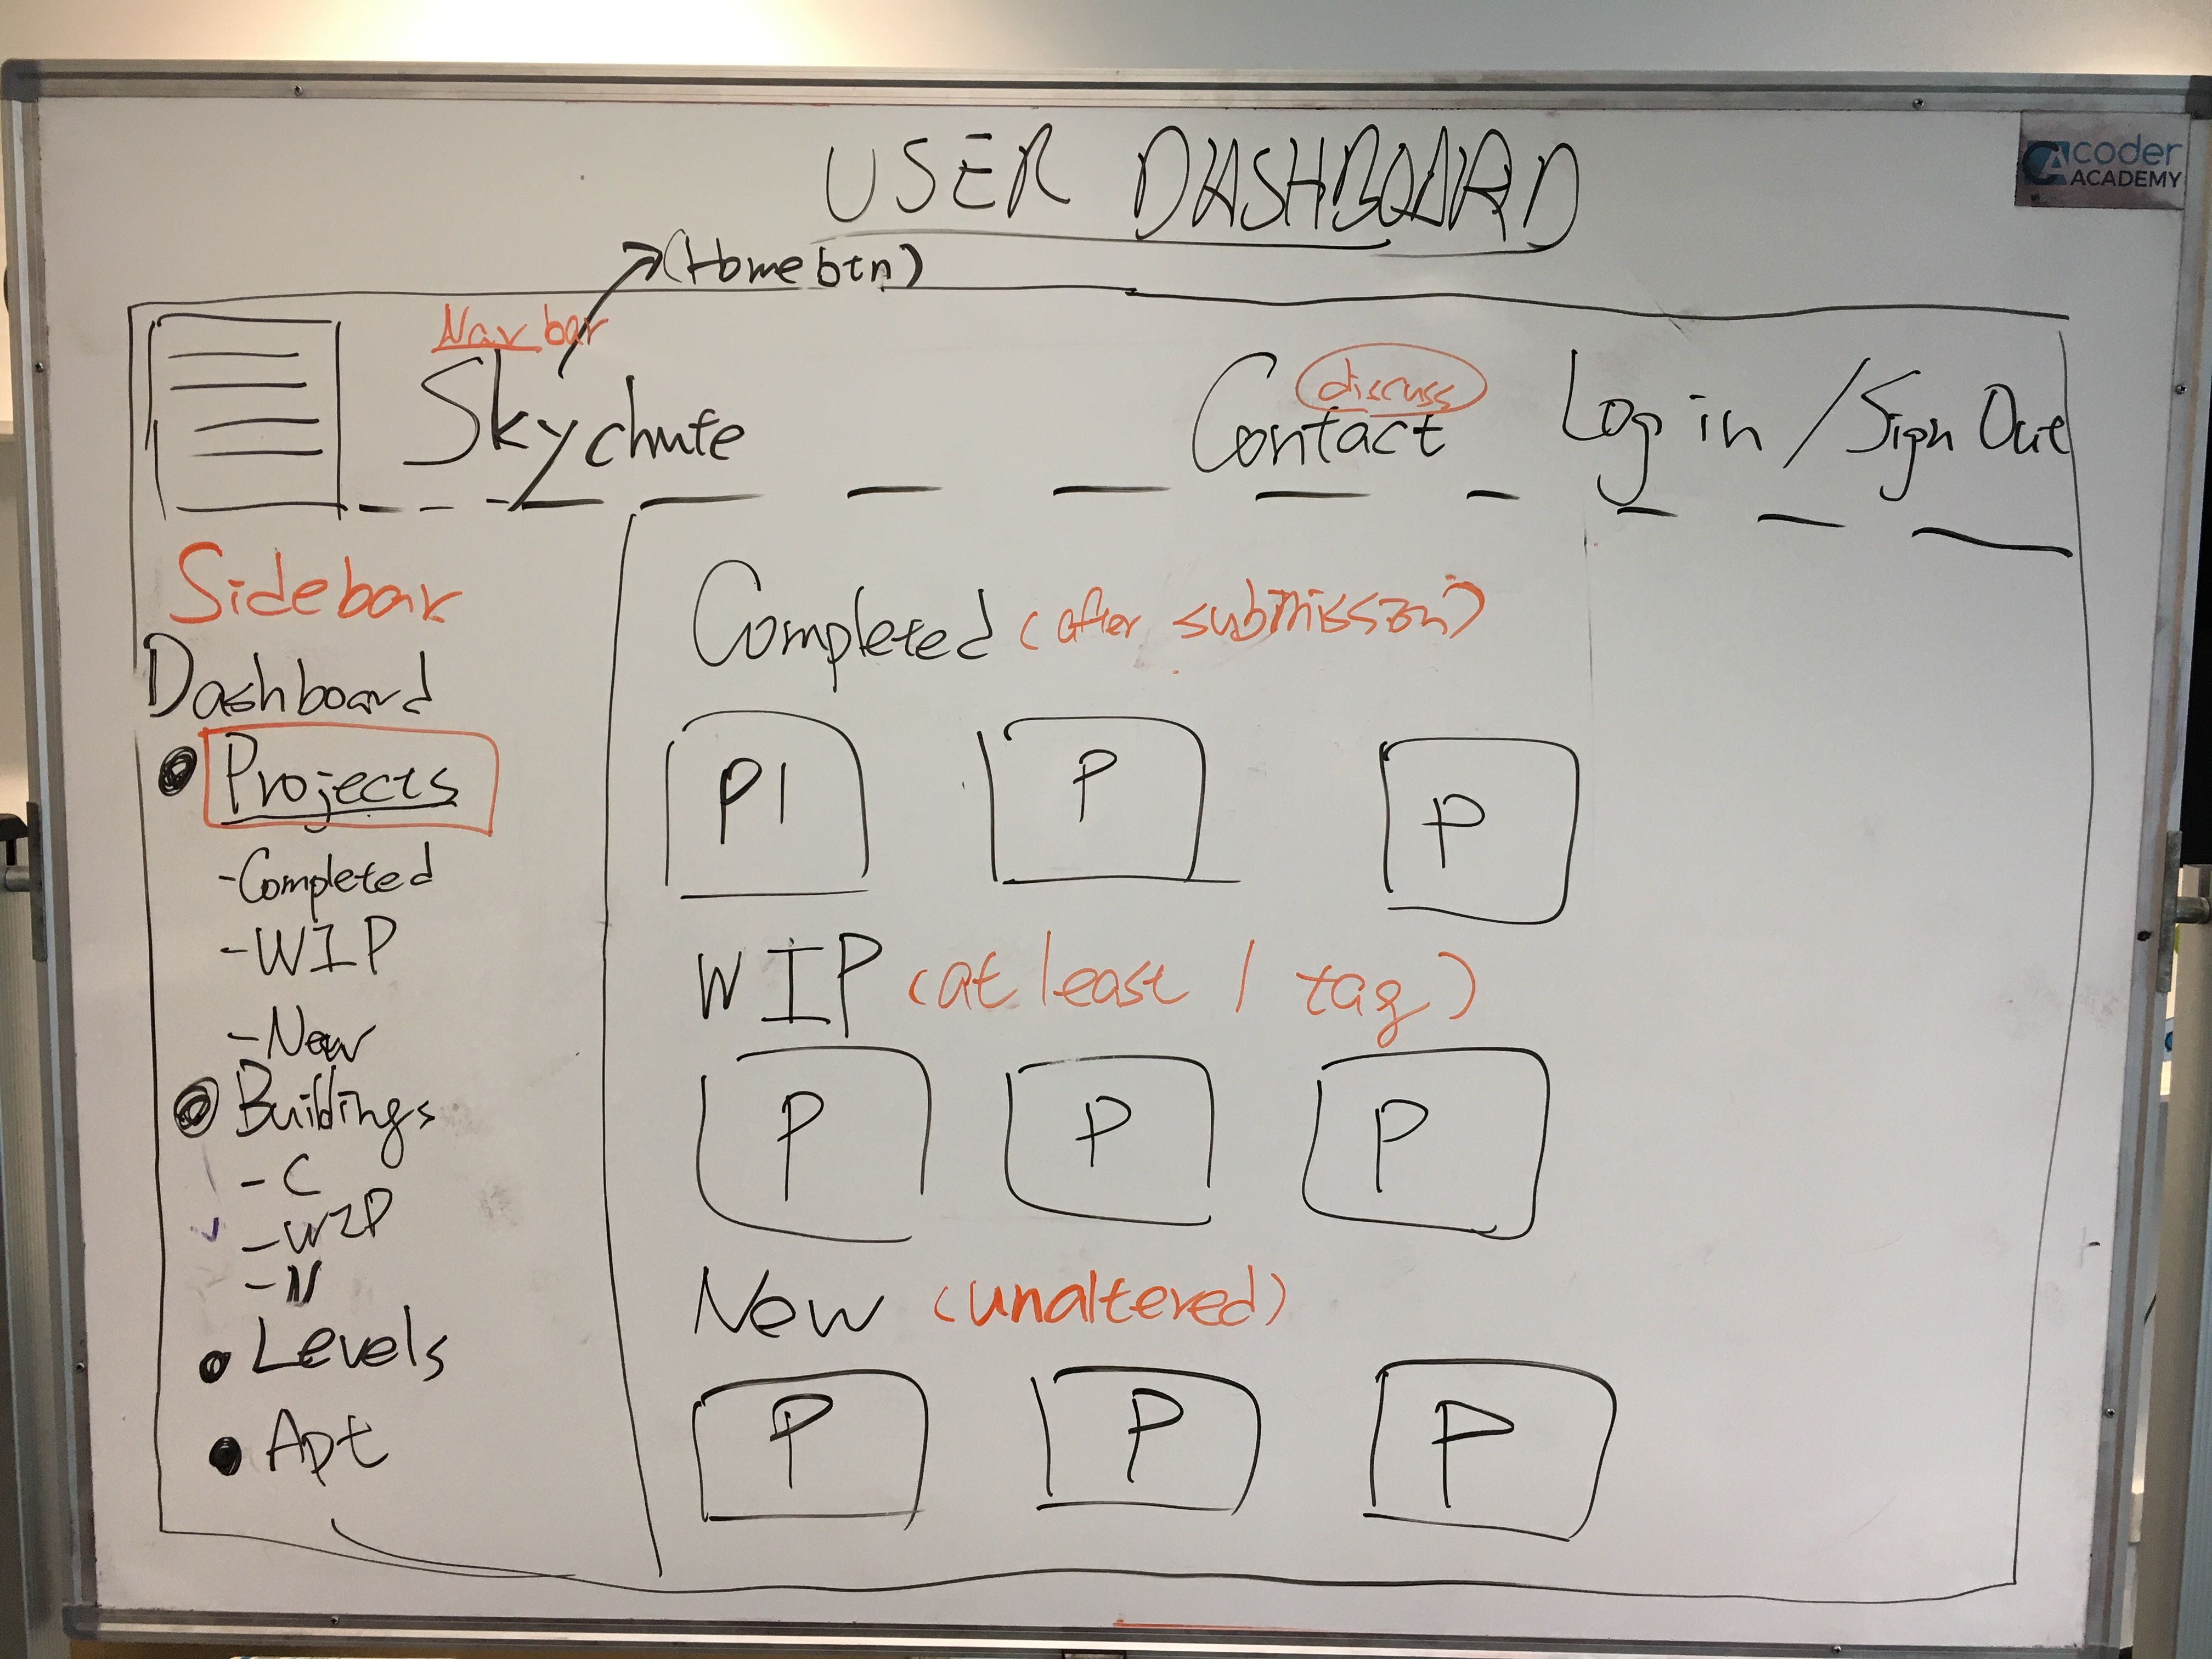 USER DASHBOARD
coder
ACADEMY
(Home btn)
Navbar
Skychute
discuss
Contact
Log in / Sign Out
Sidebar
Dashboard
Projects
- Completed
- WIP
- New
Buildings
- C
- WIP
- N
Levels
Apt
Completed (after submission)
P1 P P
WIP (at least 1 tag)
P P P
New (unaltered)
P P P